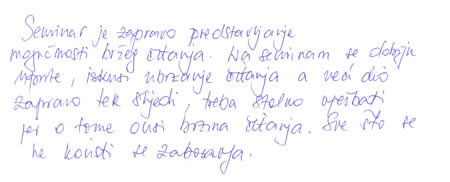 Seminar je zapravo predstavljanje
mogućnosti bržeg čitanja. Na seminaru se dobiju
upute, iskusi ubrzanje čitanja a veći dio
zapravo tek slijedi, treba stalno vježbati
jer o tome ovisi brzina čitanja. Sve što se
ne koristi se zaboravlja.